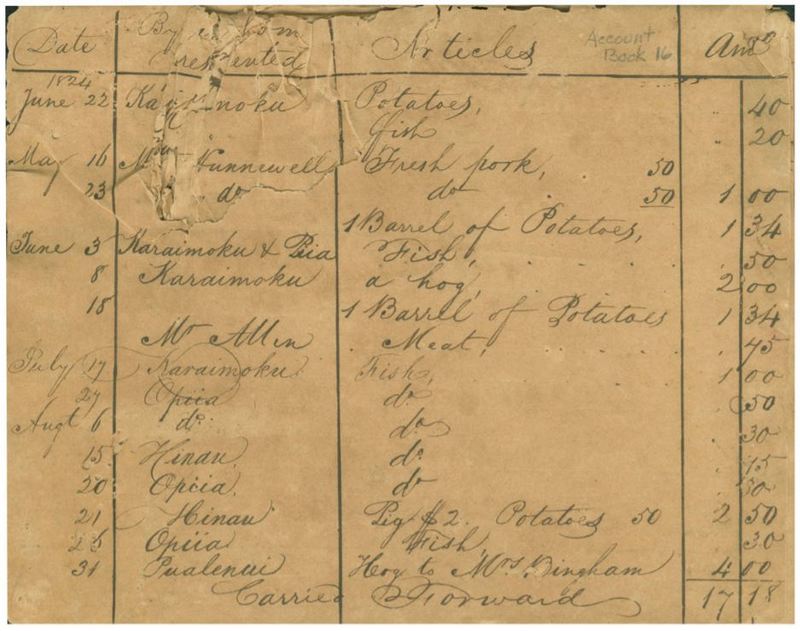 Date By whom presented Articles Account Book 16 Amt
1824
June 22 Karaimoku Potatoes, . . 40
fish . 20
May 16 Mr Hunnewell Fresh pork, 50
23 do do 50 1 00
1 Barrel of Potatoes, 1 34
June 3 Karaimoku & Piia Fish, . . . 50
8 Karaimoku a hog, . . . 2 00
18 1 Barrel of Potatoes 1 34
Mr Allen Meat, . . . . 45
July 17 Karaimoku Fish, 1 00
27 Opiia do . 50
Augt 6 do do . 30
15 Hinau do . 15
20 Opiia do
21 Hinau Pig $2. Potatoes 50 2 50
25 Opiia Fish, 30
31 Pualenui Hog to Mrs. Bingham 4 00
Carried Forward 17 18